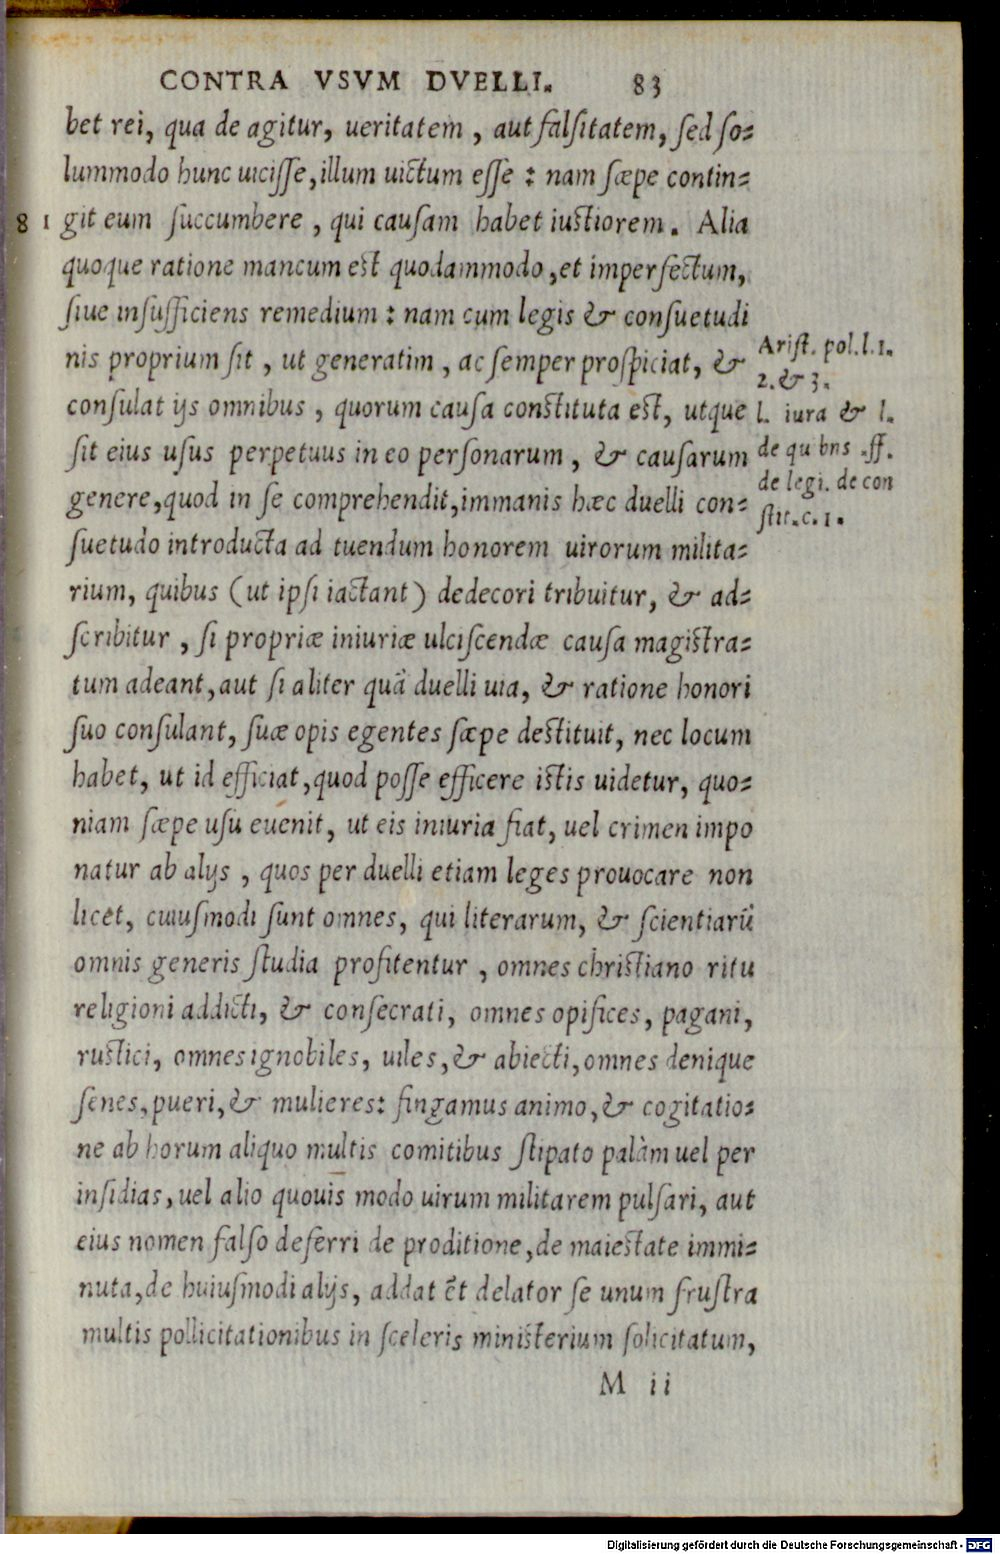 CONTRA VSVM DVELLI. 83
bet rei, qua de agitur, ueritatem, aut falſitatem, ſed ſo-
lummodo hunc uiciſſe, illum uictum eſſe : nam ſæpe contin-
81 git eum ſuccumbere, qui cauſam habet iuſtiorem. Alia
quoque ratione mancum eſt quodammodo, et imperfectum,
ſiue inſufficiens remedium : nam cum legis & conſuetudi
nis proprium ſit, ut generatim, ac ſemper proſpiciat, &
conſulat ijs omnibus, quorum cauſa conſtituta eſt, utque
ſit eius uſus perpetuus in eo perſonarum, & cauſarum
genere, quod in ſe comprehendit, immanis hæc duelli con-
ſuetudo introducta ad tuendum honorem uirorum milita-
rium, quibus (ut ipſi iactant) dedecori tribuitur, & ad-
ſcribitur, ſi propriæ iniuriæ ulciſcendæ cauſa magiſtra-
tum adeant, aut ſi aliter quā duelli uia, & ratione honori
ſuo conſulant, ſuæ opis egentes ſæpe deſtituit, nec locum
habet, ut id efficiat, quod poſſe efficere iſtis uidetur, quo-
niam ſæpe uſu euenit, ut eis iniuria fiat, uel crimen impo
natur ab alijs, quos per duelli etiam leges prouocare non
licet, cuiuſmodi ſunt omnes, qui literarum, & ſcientiarū
omnis generis ſtudia profitentur, omnes chriſtiano ritu
religioni addicti, & conſecrati, omnes opifices, pagani,
ruſtici, omnes ignobiles, uiles, & abiecti, omnes denique
ſenes, pueri, & mulieres: fingamus animo, & cogitatio-
ne ab horum aliquo multis comitibus ſtipato palàm uel per
inſidias, uel alio quouis modo uirum militarem pulſari, aut
eius nomen falſo deferri de proditione, de maieſtate immi-
nuta, de huiuſmodi alijs, addat et delator ſe unum fruſtra
multis pollicitationibus in ſceleris miniſterium ſolicitatum,
M ii
Ariſt. pol. l. 1.
2. & 3.
l. iura & l.
de qu bns .ff.
de legi. de con
ſtit. c. 1.
Digitalisierung gefördert durch die Deutsche Forschungsgemeinschaft - DFG